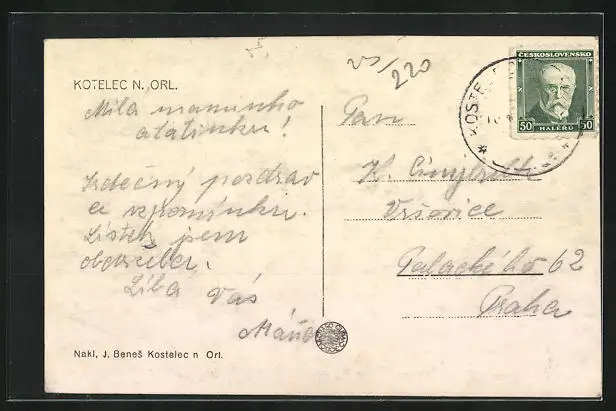 KOTELEC N. ORL.
Milá maminko
a tatínku!
Srdečný pozdrav
a vzpomínku.
Lístek jsem
obdržela.
Líbá Vás
Máňa
Nakl, J. Beneš Kostelec n Orl.
25/220
ČESKOSLOVENSKO
50 HALÉŘŮ 50
KOSTELE
Pan
K.
Vršovice
Palackého 62
Praha